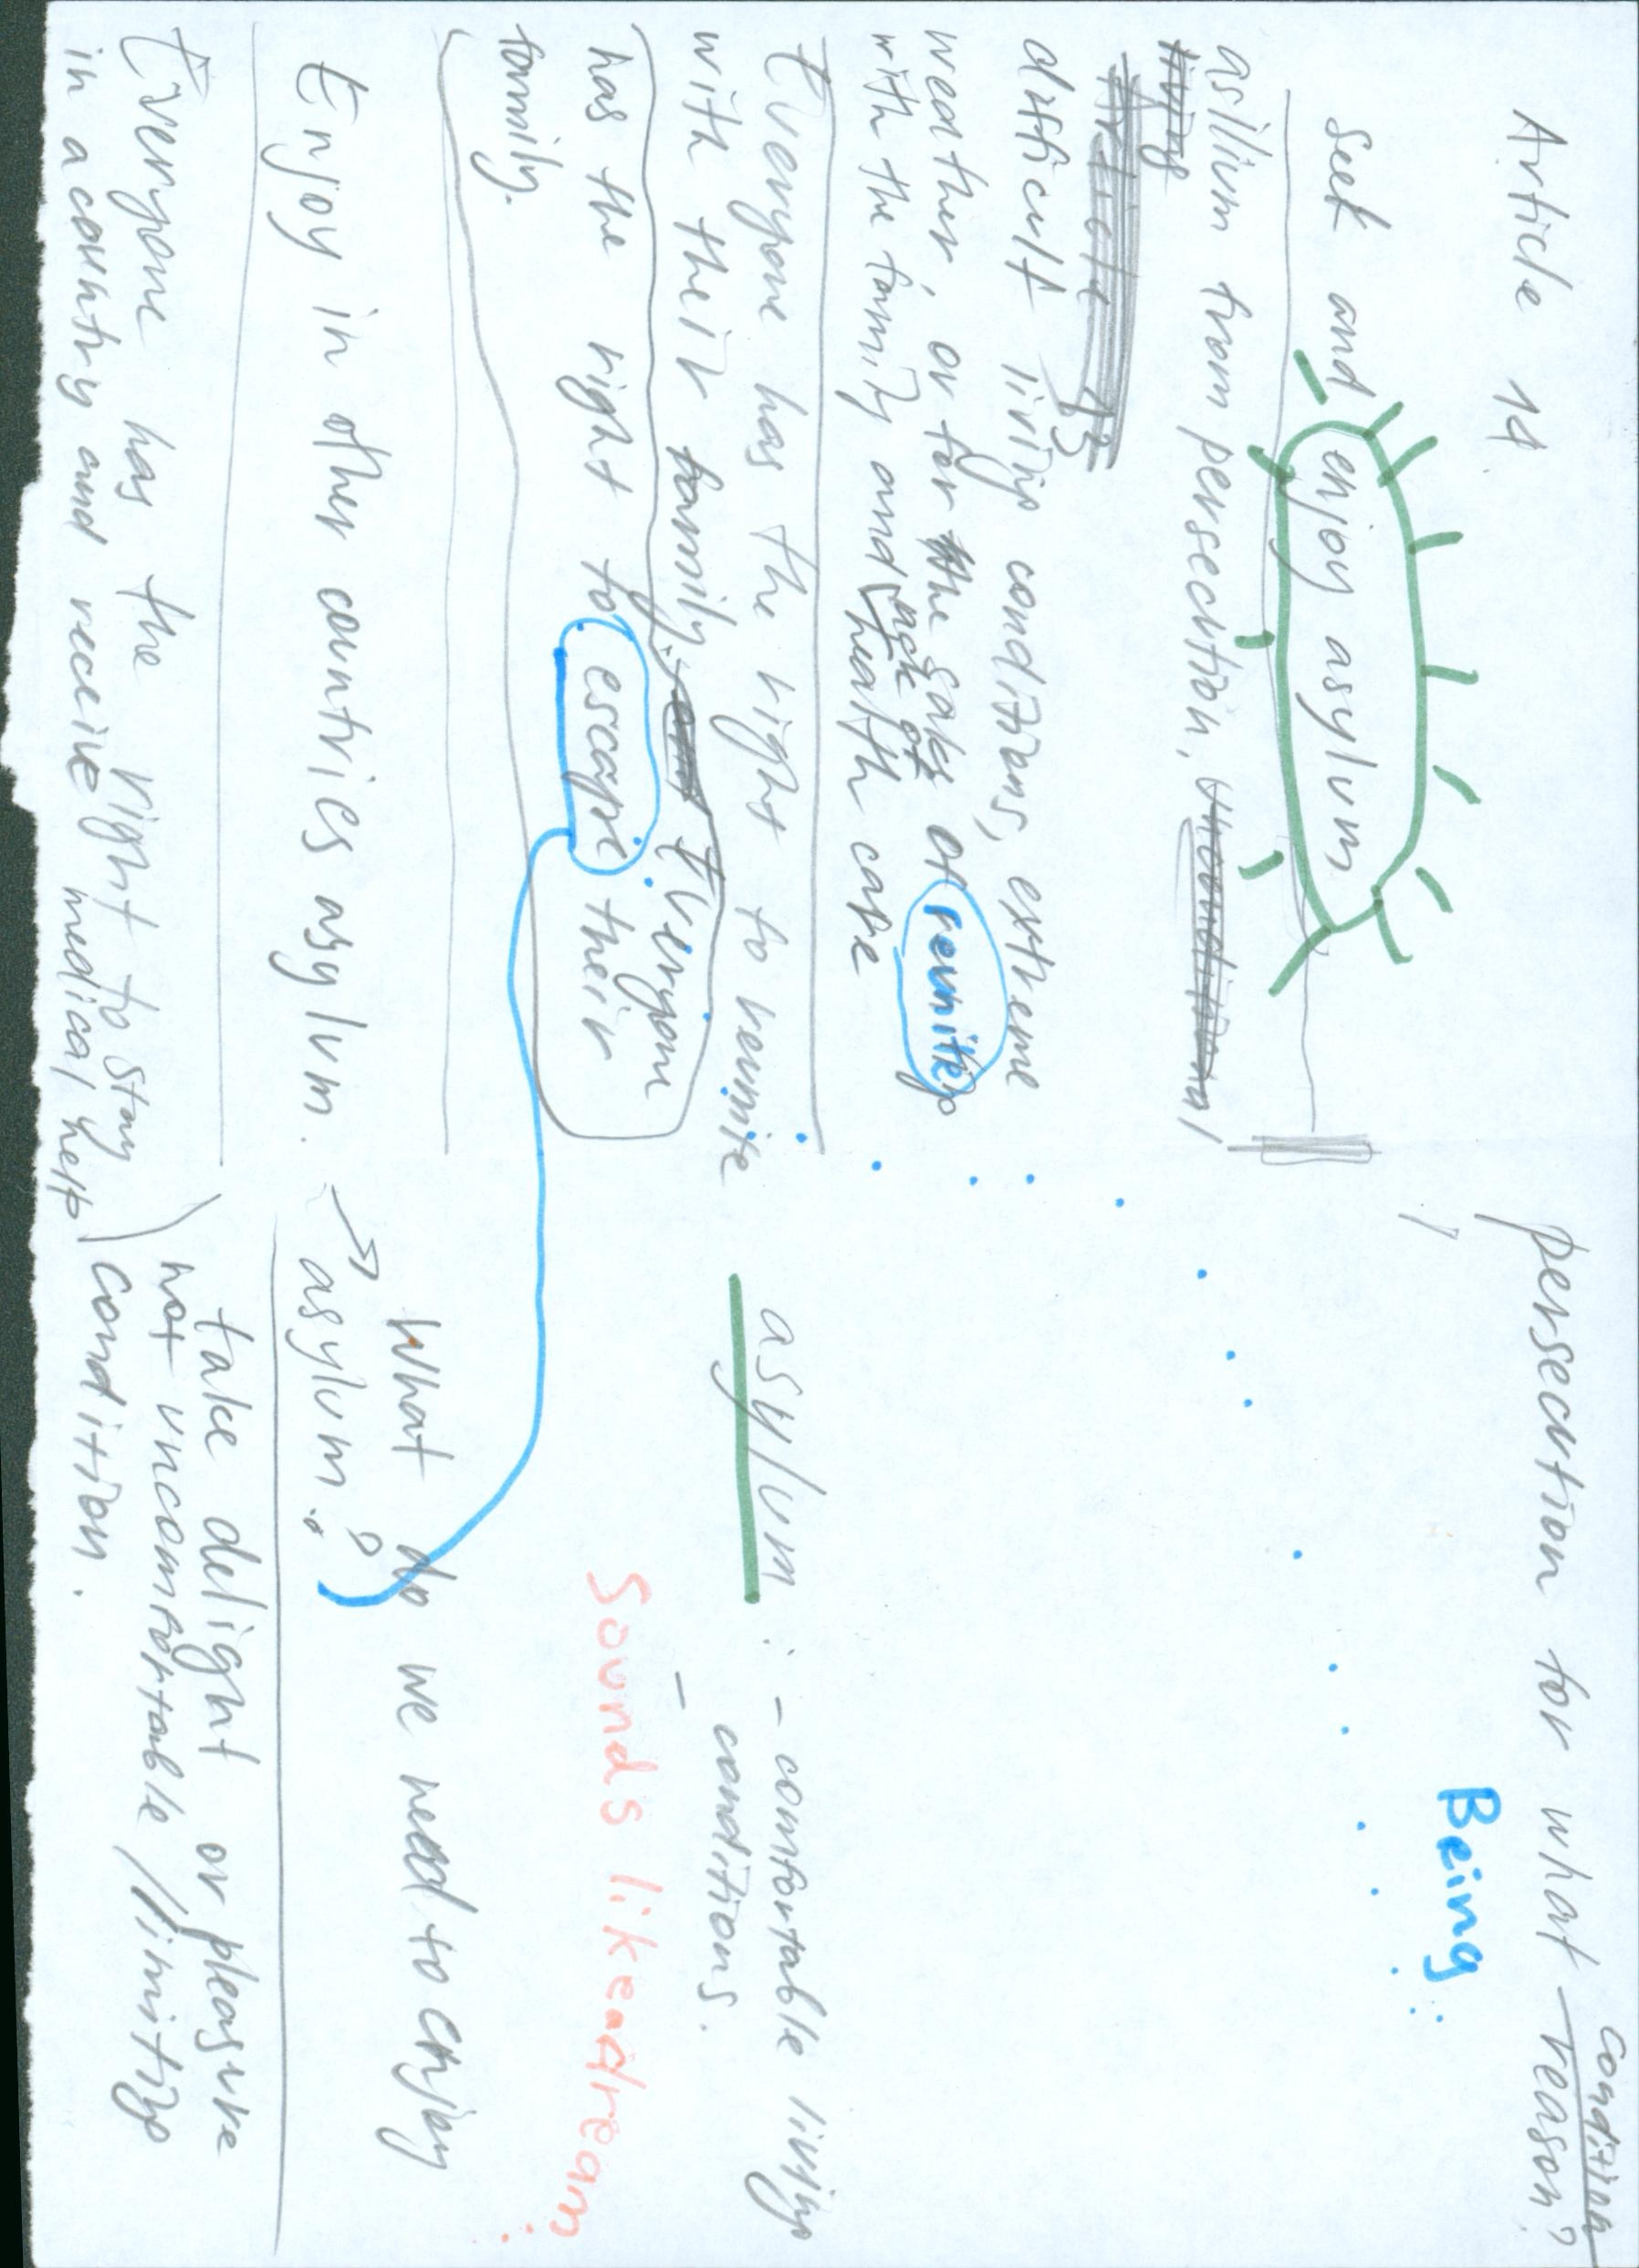 Article 14
Seek and enjoy asylum
asilium from persecution,
living
Article 13
difficult living conditions, extreme
weather, or for the sake of reuniting
with the family and lack of health care
Everyone has the right to reunite
with their family. Everyone
has the right to escape their
family.
Enjoy in other countries asylum.
Everyone has the right to stay
in a country and receive medical help
condition
persecution for what reason?
Being
asylum : - comfortable living
conditions.
-
Sounds like a dream
What do we need to enjoy
asylum?
take delight or pleasure
not uncomfortable / limiting
condition.